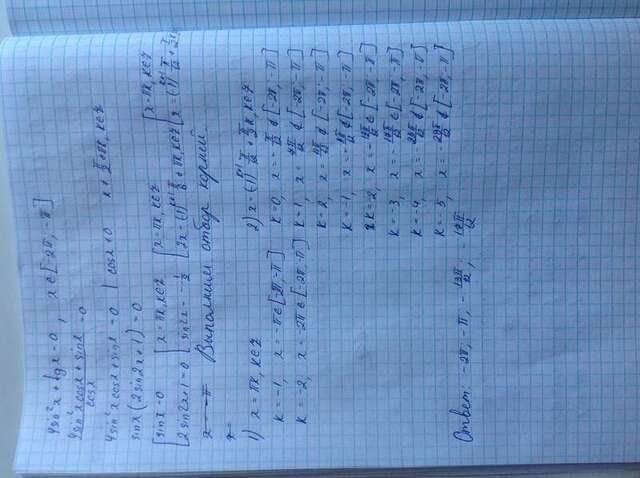 4sin²x + tgx = 0, x ∈ [-2π; -π]
4sin²x cosx + sinx / cosx = 0
4sin²x cosx + sinx = 0 | cosx ≠ 0 x ≠ π/2 + πk, k∈Z
sinx (2sin2x + 1) = 0
[ sinx = 0 [ x = πk, k∈Z [ x = πk, k∈Z [ x = πk, k∈Z
2sin2x + 1 = 0 sin2x = -1/2 2x = (-1)^(k+1) π/6 + πk, k∈Z x = (-1)^(k+1) π/12 + π/2 k, k∈Z
Выполним отбор корней.
1) x = πk, k∈Z
k = -1, x = -π ∈ [-2π; -π]
k = -2, x = -2π ∈ [-2π; -π]
2) x = (-1)^(k+1) π/12 + π/2 k, k∈Z
k = 0, x = -π/12 ∉ [-2π; -π]
k = 1, x = 7π/12 ∉ [-2π; -π]
k = 2, x = 11π/12 ∉ [-2π; -π]
k = -1, x = ∉ [-2π; -π]
k = -2, x = -13π/12 ∈ [-2π; -π]
k = -3, x = -17π/12 ∈ [-2π; -π]
k = -4, x = -25π/12 ∉ [-2π; -π]
k = -5, x = -29π/12 ∉ [-2π; -π]
Ответ: -2π; -π; -13π/12; -17π/12